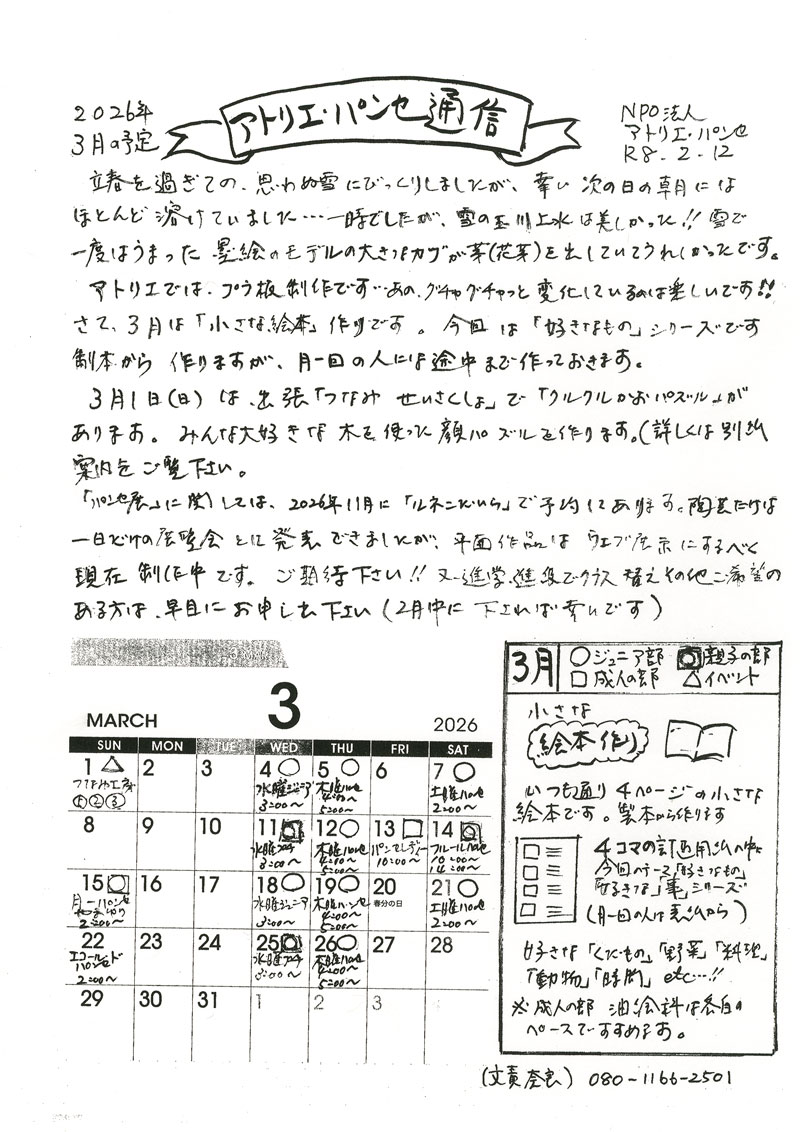 2026年
3月の予定
アトリエ・パンセ通信
NPO法人
アトリエ・パンセ
R8.2.12
立春を過ぎての、思わぬ雪にびっくりしましたが、幸い次の日の朝には
ほとんど溶けていました…一時でしたが、雪の玉川上水は美しかった!!雪で
一度はうまった墨絵のモデルの大きなカブが芽(花芽)を出していてうれしかったです。
アトリエでは、プラ板制作です…あの、グチャグチャっと変化しているのは楽しいです!!
さて、3月は「小さな絵本」作りです。今回は「好きなもの」シリーズです
製本から作りますが、月一回の人には途中まで作っておきます。
3月1日(日)は、出張「つなみせいさくしょ」で「クルクルかおパズル」が
あります。みんな大好きな木を使った顔パズルを作ります。(詳しくは別紙
案内をご覧下さい。
「パンセ展」に関しては、2026年11月に「ルネこだいら」で予約してあります。陶芸だけは
一日だけの展覧会として発表できましたが、平面作品はウェブ展示にするべく
現在制作中です。ご期待下さい!!又、進学、進級でクラス替えその他ご希望の
ある方は、早目にお申し出下さい(2月中に下されば幸いです)
3月 ○ジュニア部 親子の部
□成人の部 △イベント
小さな
絵本作り
いつも通り4ページの小さな
絵本です。製本から作ります
4コマの計画用紙の中に
今回のテーマ「好きなもの」
「好きな「事」シリーズ
(月一回の人は表紙から)
好きな「くだもの」「野菜」「料理」
「動物」「時間」etc…!!
※成人の部 油絵科は各自の
ペースですすめます。
MARCH 3 2026
SUN MON TUE WED THU FRI SAT
1△ 2 3 4○ 5○ 6 7○
つなみ工房
①②③
水曜ジュニア
3:00〜
木曜パンセ
4:00〜
5:00〜
土曜パンセ
2:00〜
8 9 10 11 12○ 13□ 14
水曜プチ
3:00〜
木曜パンセ
4:00〜
5:00〜
パンセレディー
10:00〜
フルールパンセ
10:00〜
14:00〜
15 16 17 18○ 19○ 20 21○
月一パンセ
2:00〜
水曜ジュニア
3:00〜
木曜パンセ
4:00〜
5:00〜
春分の日
土曜パンセ
2:00〜
22 23 24 25 26○ 27 28
エコールド
パンセ
2:00〜
水曜プチ
3:00〜
木曜パンセ
4:00〜
5:00〜
29 30 31 1 2 3
(文責 奈良) 080-1166-2501